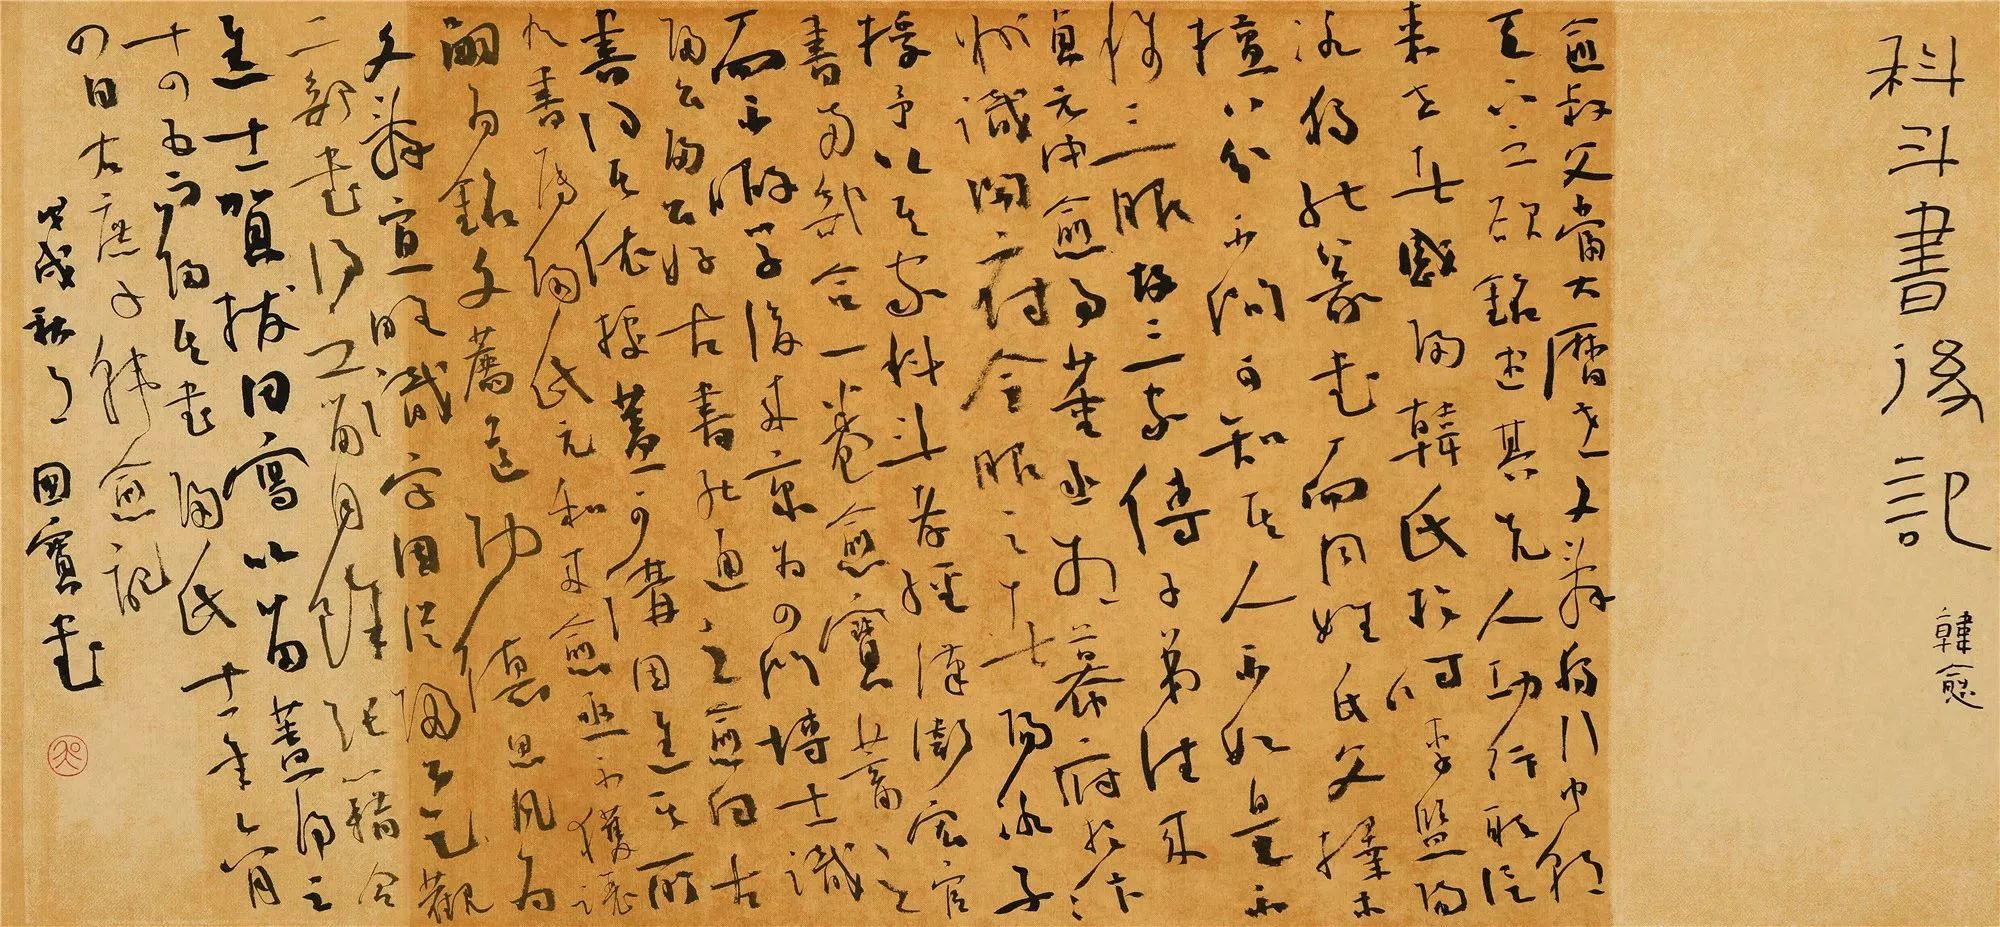 科斗書後記
韓愈
愈叔父當大曆世文辭獨行中朝
天下之欲銘述其先人功行取信
來世者咸歸韓氏於時李監陽
冰獨能篆書而同姓氏父擇木
擅八分不問可知其人不如是不
稱三服故三家傳子弟往來
貞元中愈事董丞相幕府於汴
州識開封令服之者陽冰子
授予以其家科斗孝經漢衛宏官
書兩部合一卷愈寶蓄之
而不暇學後來京為四門博士識
歸公歸公好古書能通之愈曰古
書得其依據蓋可講因進其所
有書屬歸氏元和來愈亟不獲讓
嗣為銘文薦道功德思凡為
文辭宜略識字因從歸公乞觀
二部書得之留月餘張籍令
進士賀拔恕寫以留蓋得之
十四五而歸其書歸氏十一年六月
四日右庶子韓愈記
戊戌秋月
国寶書